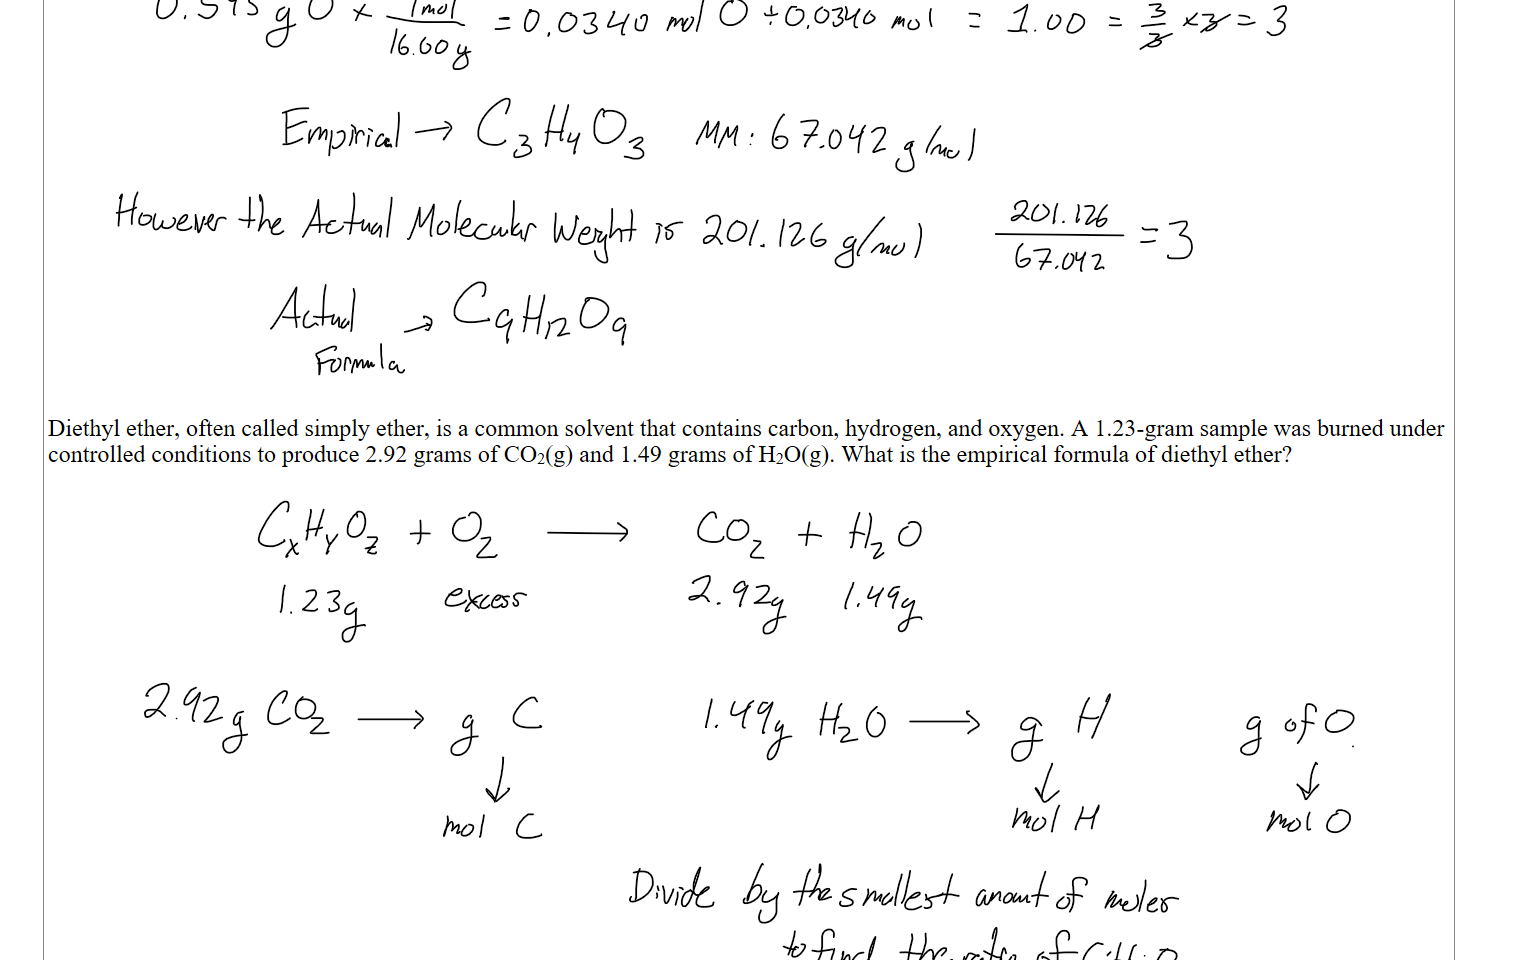 0.545 g O x 1mol / 16.00g = 0.0340 mol O ÷ 0.0340 mol = 1.00 = 3/3 x3 = 3
Empirical → C3H4O3 MM: 67.042 g/mol
However the Actual Molecular Weight is 201.126 g/mol 201.126 / 67.042 = 3
Actual Formula → C9H12O9
Diethyl ether, often called simply ether, is a common solvent that contains carbon, hydrogen, and oxygen. A 1.23-gram sample was burned under
controlled conditions to produce 2.92 grams of CO2(g) and 1.49 grams of H2O(g). What is the empirical formula of diethyl ether?
CxHyOz + O2 → CO2 + H2O
1.23g excess 2.92g 1.49g
2.92g CO2 → g C 1.49g H2O → g H g of O
↓ ↓ ↓
mol C mol H mol O
Divide by the smallest amount of moles
to find the ratio of C:H:O